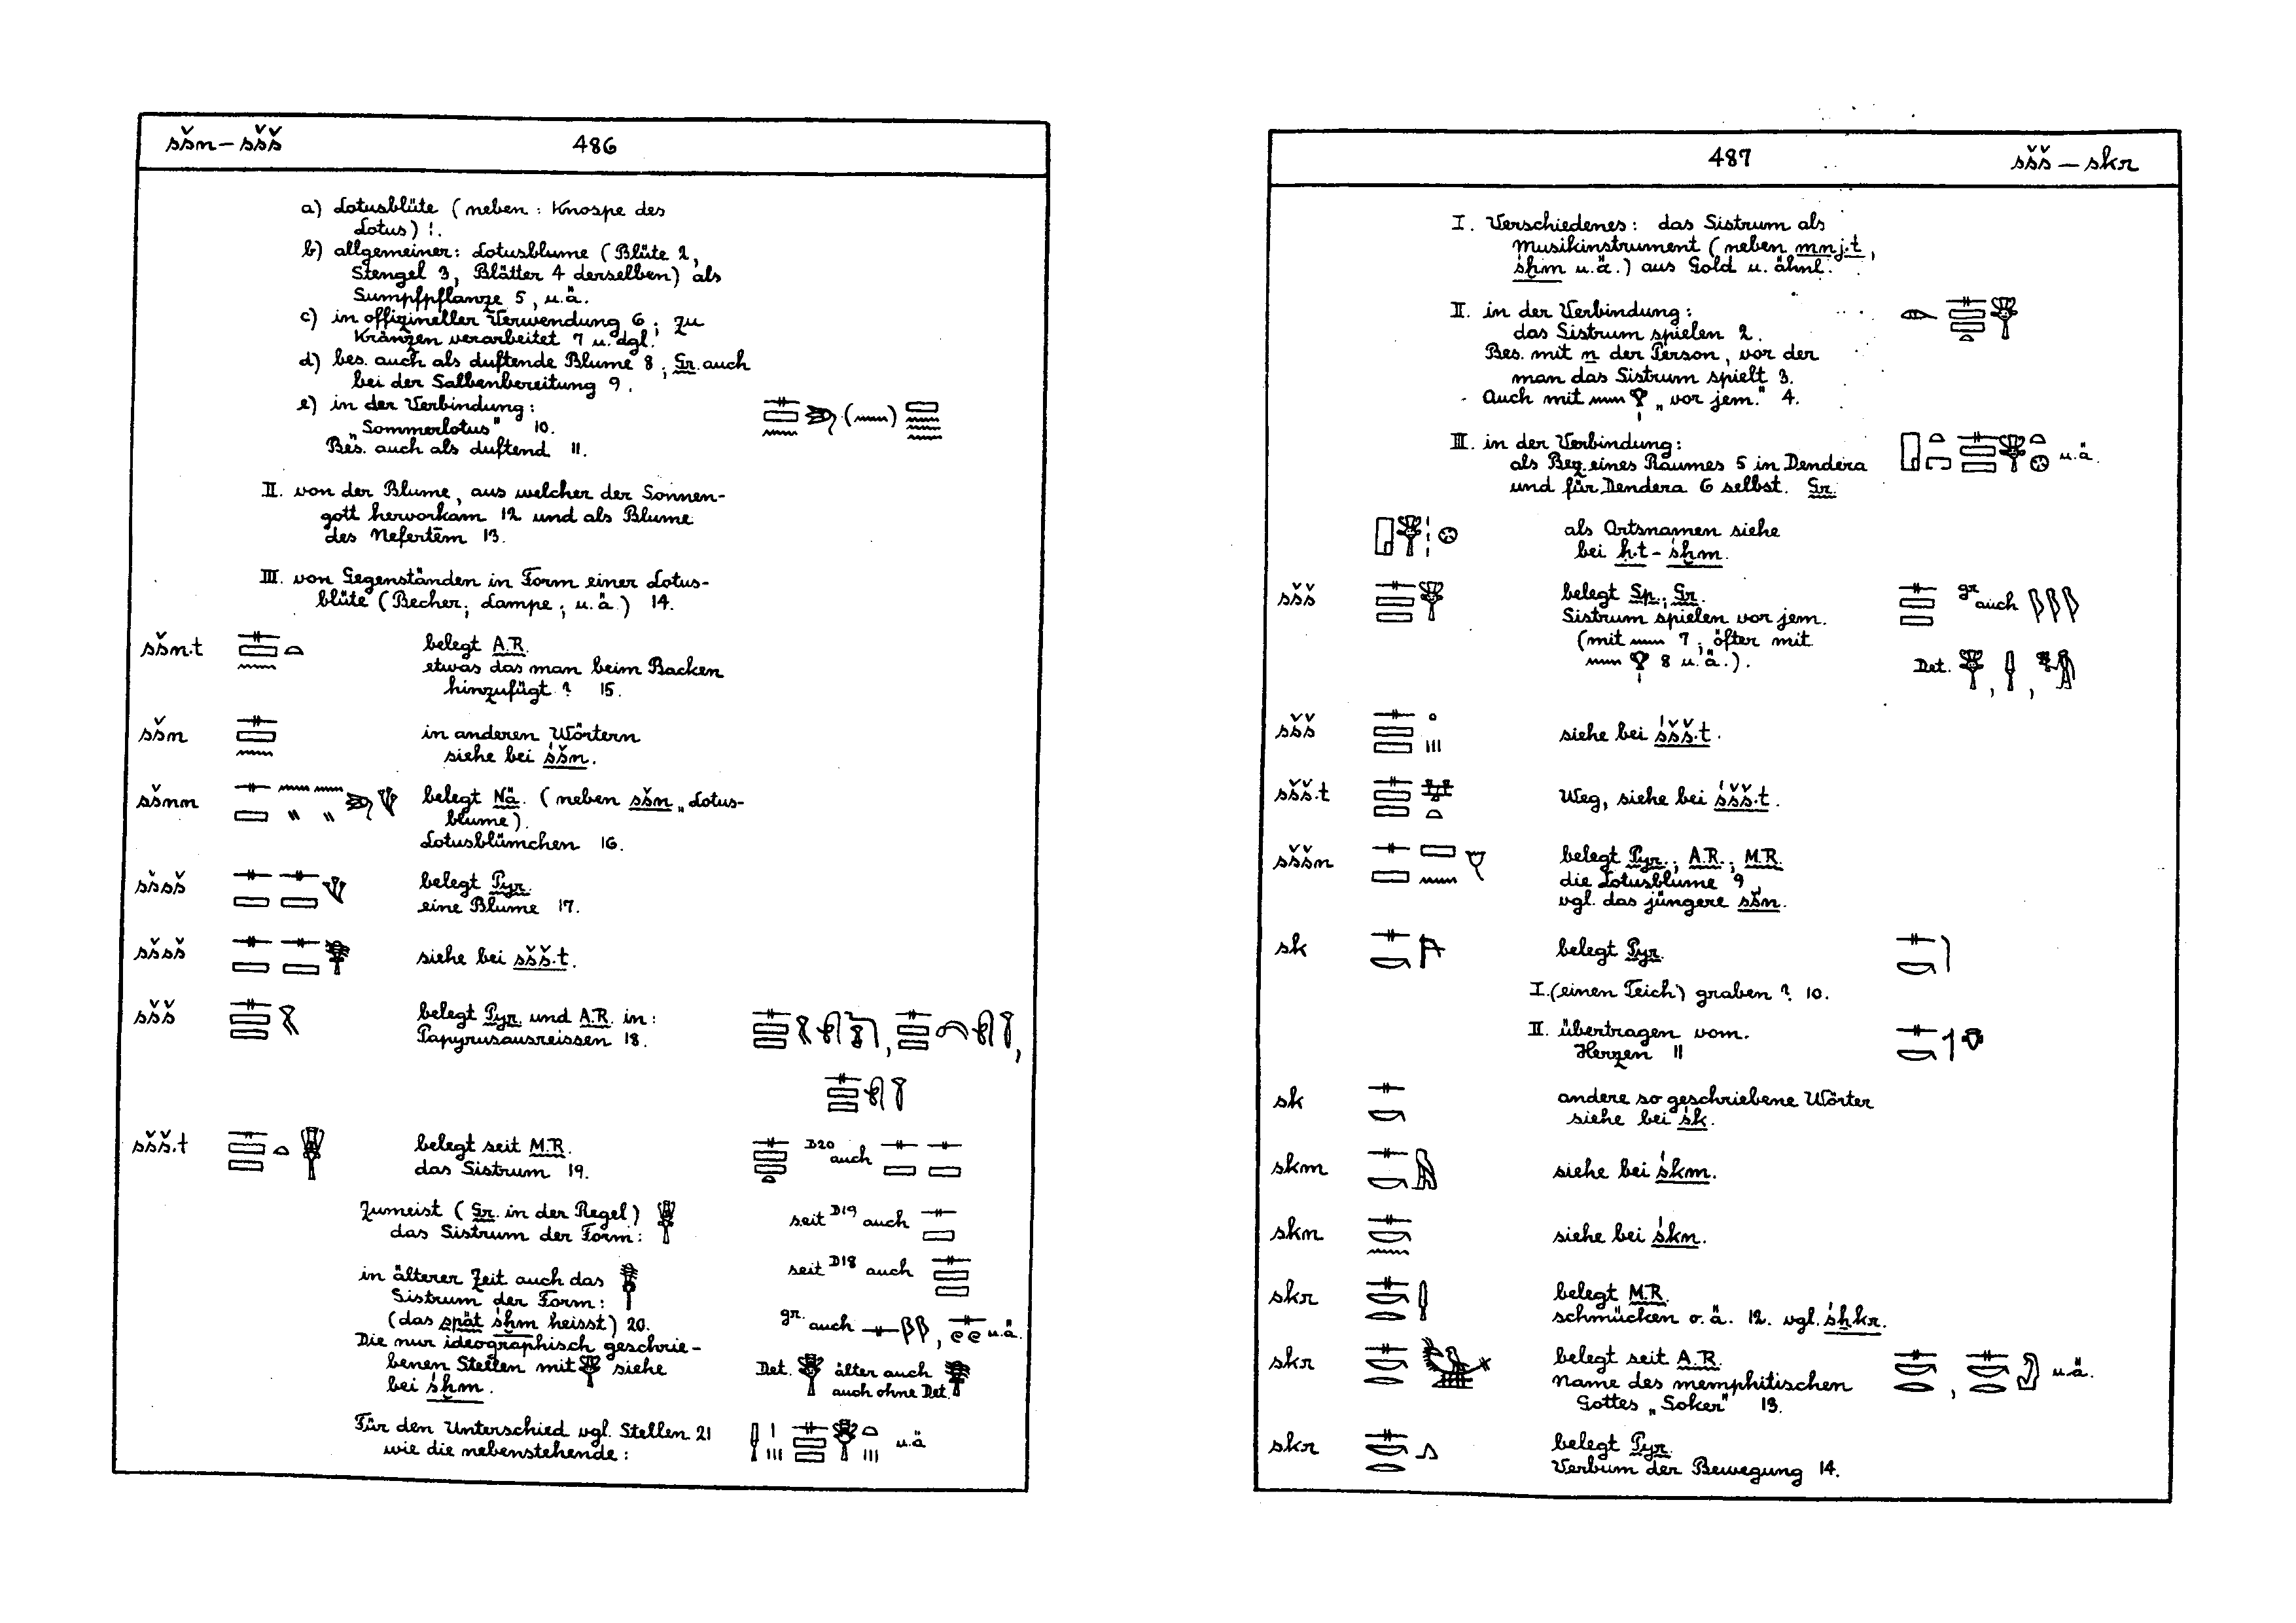 sšn – sšš 486
a) Lotusblüte (neben: Knospe des
Lotus) 1.
b) allgemeiner: Lotusblume (Blüte 2,
Stengel 3, Blätter 4 derselben) als
Sumpfpflanze 5, u.ä.
c) in offizineller Verwendung 6; zu
Kränzen verarbeitet 7 u. dgl.
d) bes. auch als duftende Blume 8; Gr. auch
bei der Salbenbereitung 9.
e) in der Verbindung:
„Sommerlotus" 10.
Bes. auch als duftend 11.
II. von der Blume, aus welcher der Sonnen-
gott hervorkam 12 und als Blume
des Nefertēm 13.
III. von Gegenständen in Form einer Lotus-
blüte (Becher; Lampe; u.ä.) 14.
sšn.t belegt A.R.
etwas das man beim Backen
hinzufügt? 15.
sšn in anderen Wörtern
siehe bei śšn.
sšnn belegt Nä. (neben sšn „Lotus-
blume).
Lotusblümchen 16.
sšsš belegt Pyr.
eine Blume 17.
sšsš siehe bei sšš.t.
sšš belegt Pyr. und A.R. in:
Papyrusausreissen 18.
sšš.t belegt seit M.R. D20 auch
das Sistrum 19.
Zumeist (Gr. in der Regel) seit D19 auch
das Sistrum der Form:
in älterer Zeit auch das seit D18 auch
Sistrum der Form:
(das spät śḫm heisst) 20. gr. auch u.ä.
Die nur ideographisch geschrie-
benen Stellen mit siehe Det. älter auch
bei śḫm. auch ohne Det.
Für den Unterschied vgl. Stellen 21 u.ä
wie die nebenstehende:
487 sšš – skr
I. Verschiedenes: das Sistrum als
Musikinstrument (neben mnj.t,
śḫm u.ä.) aus Gold u. ähnl.
II. in der Verbindung:
das Sistrum spielen 2.
Bes. mit n der Person, vor der
man das Sistrum spielt 3.
Auch mit „vor jem." 4.
III. in der Verbindung: u.ä.
als Bez. eines Raumes 5 in Dendera
und für Dendera 6 selbst. Gr.
als Ortsnamen siehe
bei ḥ.t-śḫm.
sšš belegt Sp.; Gr. gr auch
Sistrum spielen vor jem.
(mit 7; öfter mit
8 u.ä.). Det. , ,
sšš siehe bei śšš.t.
sšš.t Weg, siehe bei śšš.t.
sššn belegt Pyr.; A.R.; M.R.
die Lotusblume 9
vgl. das jüngere sšn.
sk belegt Pyr.
I. (einen Teich) graben? 10.
II. übertragen vom.
Herzen 11
sk andere so geschriebene Wörter
siehe bei śk.
skm siehe bei śkm.
skn siehe bei śkn.
skr belegt M.R.
schmücken o.ä. 12. vgl. śḫkr.
skr belegt seit A.R. , u.ä.
Name des memphitischen
Gottes „Soker" 13.
skr belegt Pyr.
Verbum der Bewegung 14.